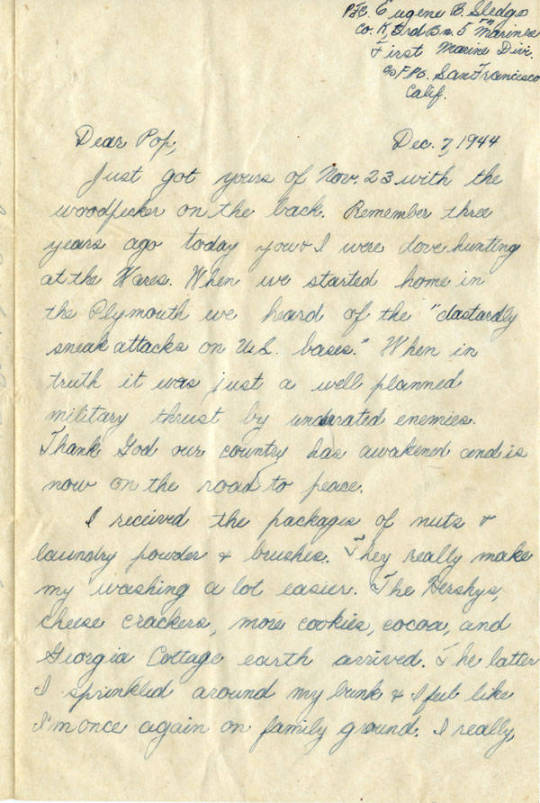 Pfc. Eugene B. Sledge
Co. K, 3rd Bn. 5th Marines
First Marine Divi.
c/o F.P.O. San Francisco
Calif.
Dear Pop,
Dec. 7, 1944
Just got yours of Nov. 23 with the
woodpecker on the back. Remember three
years ago today you & I were dove hunting
at the Hares. When we started home in
the Plymouth we heard of the "dastardly
sneak attacks on U.S. bases." When in
truth it was just a well planned
military thrust by underated enemies.
Thank God our country has awakened and is
now on the road to peace.
I received the packages of nuts &
laundry powder & brushes. They really make
my washing a lot easier. The Hershys,
cheese crackers, more cookies, cocoa, and
Georgia Cottage earth arrived. The latter
I sprinkled around my bunk & I feel like
I'm once again on family ground. I really